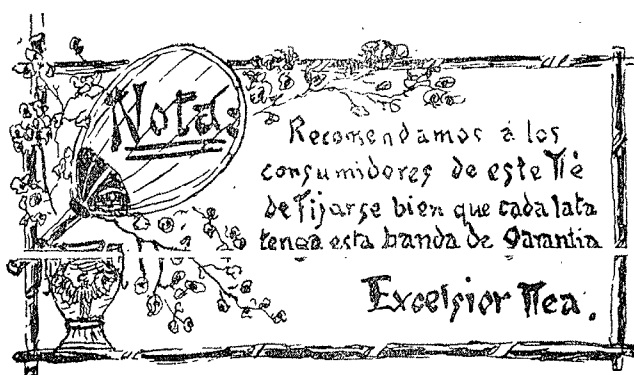 Nota:
Recomendamos á los
consumidores de este Té
de fijarse bien que cada lata
tenga esta banda de Garantia
Excelsior Tea.